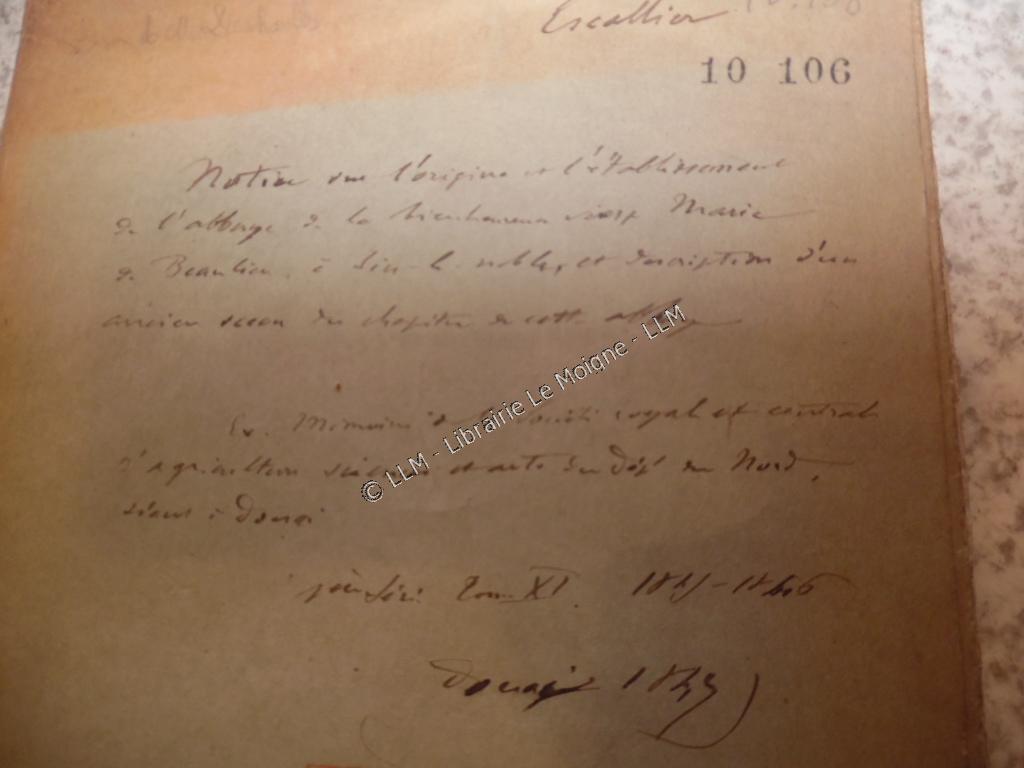 Escallier
10 106
Notice sur l'origine et l'établissement
de l'abbaye de la bienheureuse vierge Marie
de Beaulieu, à Sin-le-noble, et description d'un
ancien sceau du chapitre de cette abbaye
Ex. Mémoires de la société royale et centrale
d'agriculture sciences et arts du dépt du Nord,
séant à Douai
série Tom XI. 1845-1846
Douai 1849)
© LLM - Librairie Le Moigne - LLM